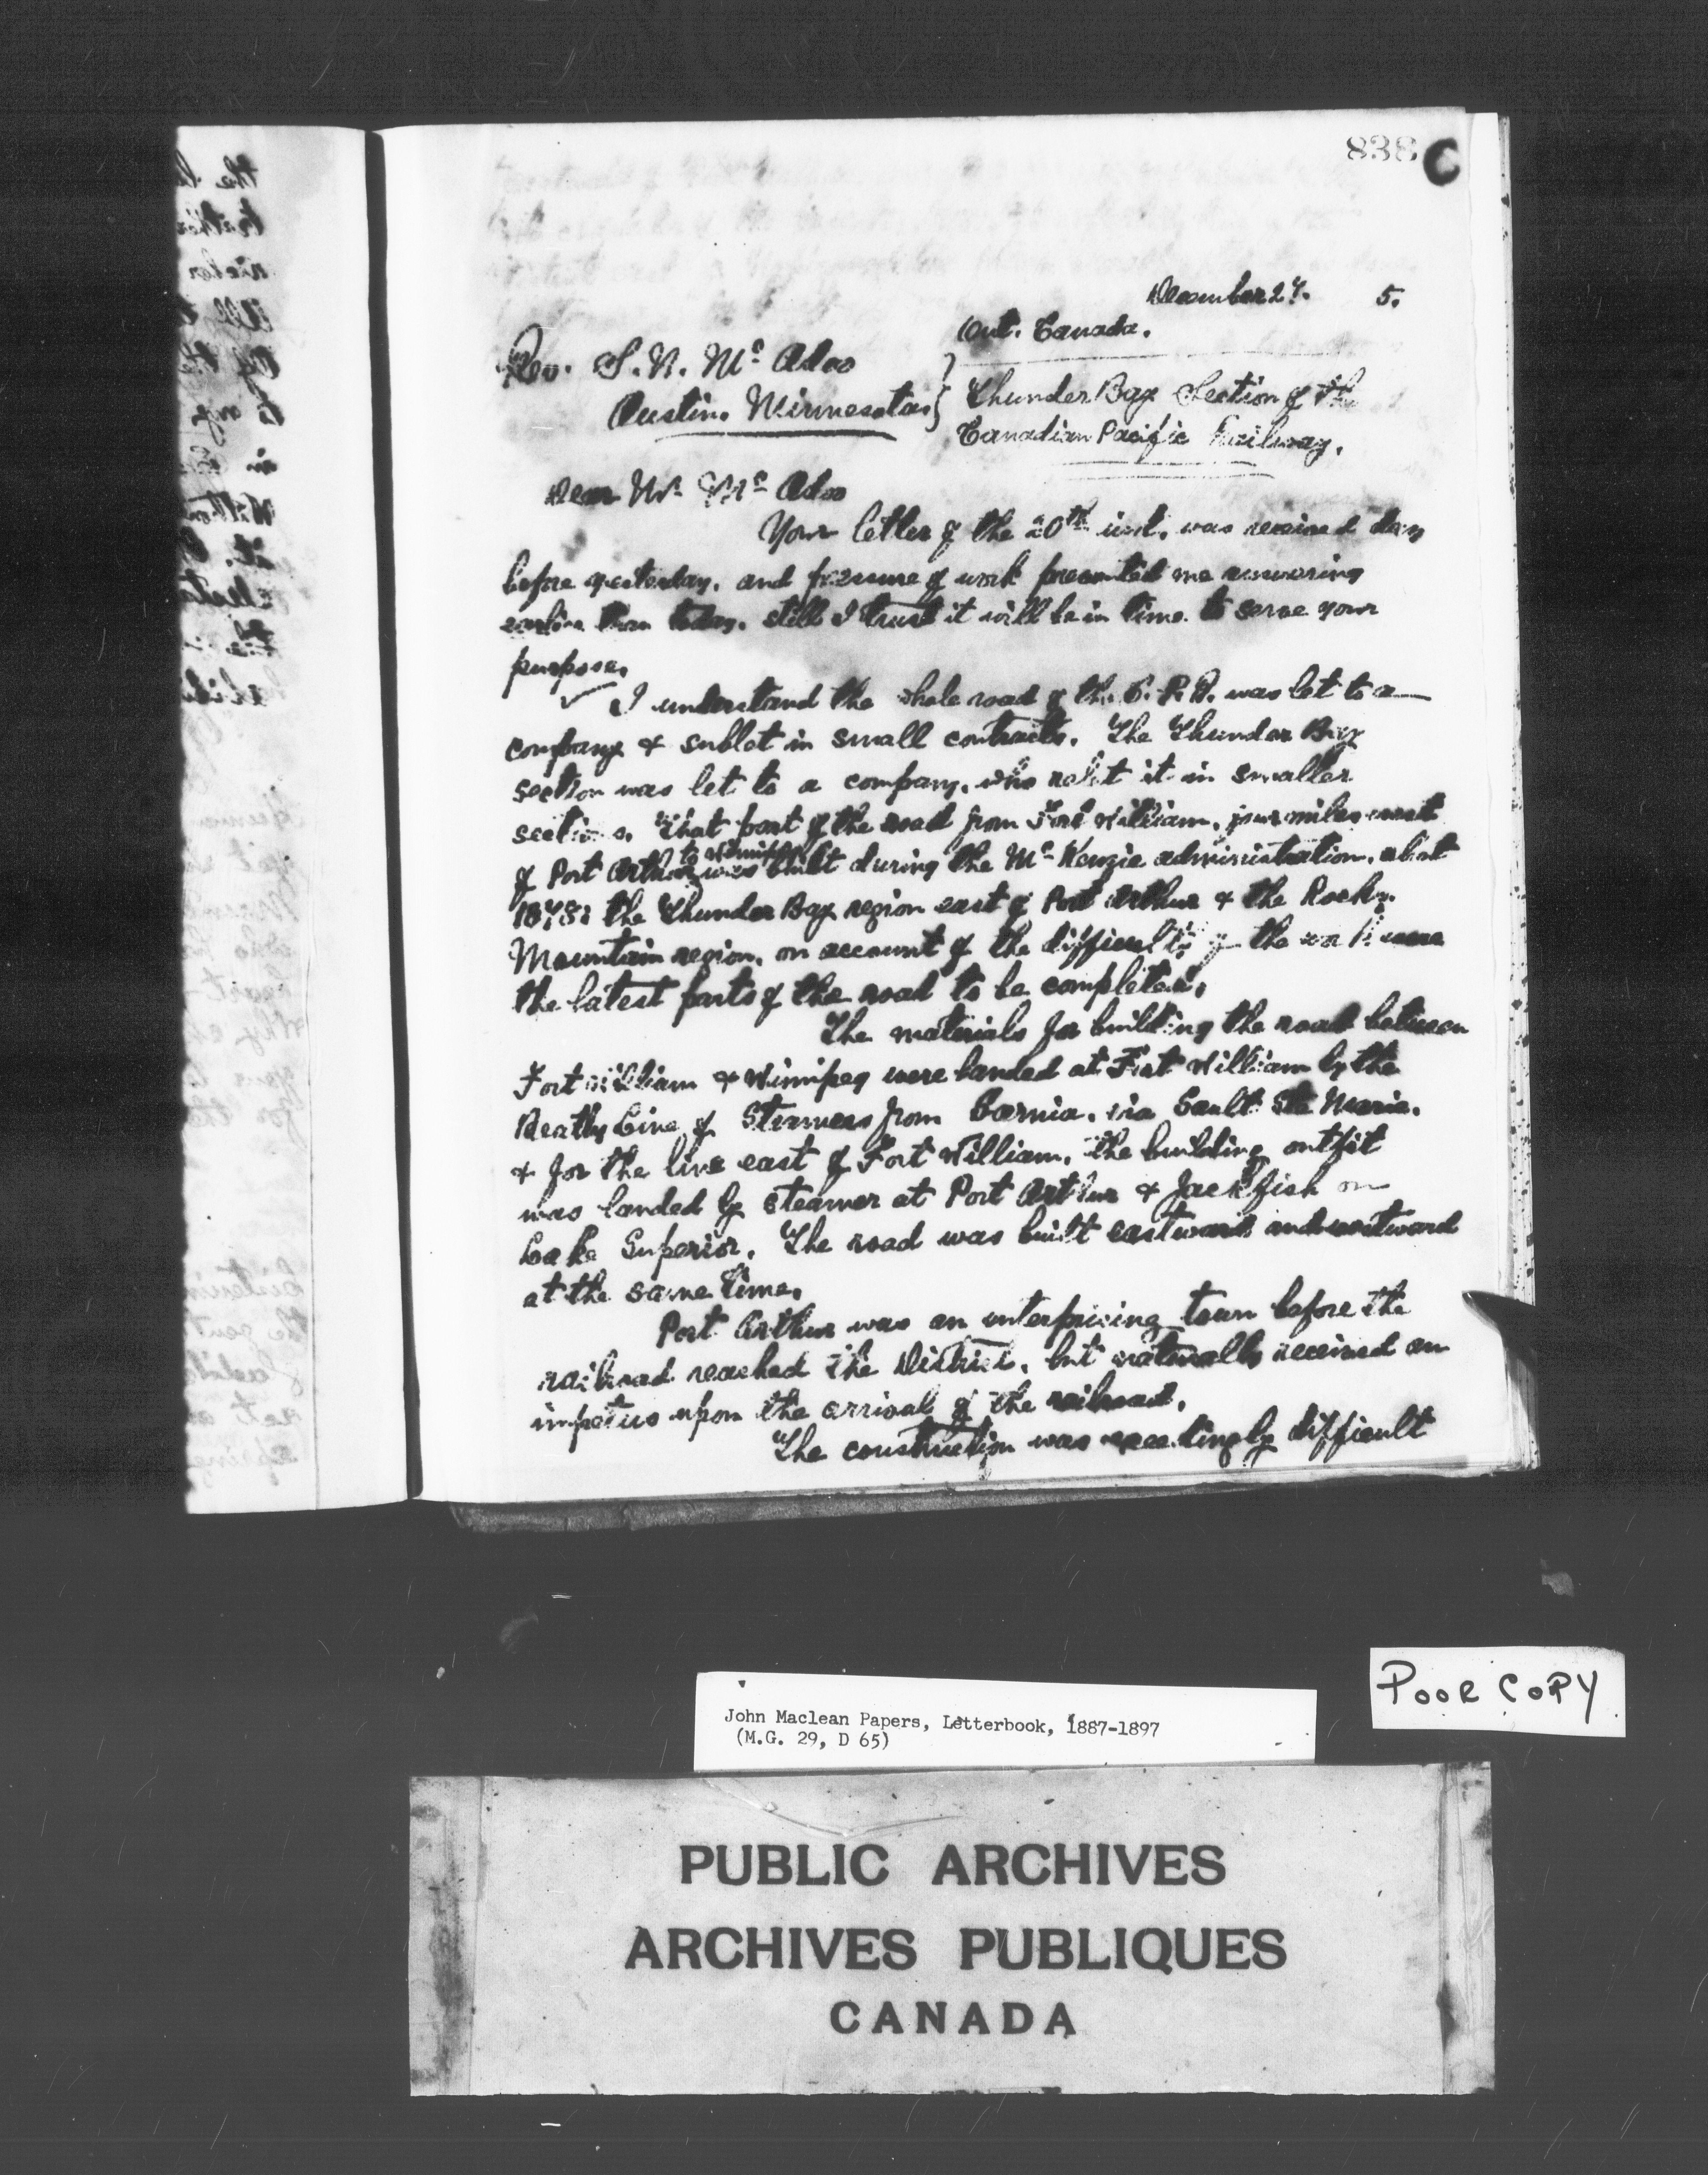 838 C
December 27. 5.
Ont. Canada.
Rev. S. N. Mc Adoo
Austin, Minnesota.
Thunder Bay Section of the
Canadian Pacific Railway.
Dear Mr. Mc Adoo
Your letter of the 20th inst. was received day
before yesterday, and pressure of work prevented me answering
earlier than today. Still I trust it will be in time to serve your
purpose.
I understand the whole road of the C. P. R. was let to a
company & sublet in small contracts. The Thunder Bay
section was let to a company, who relet it in smaller
sections. That part of the road from Fort William, four miles west
of Port Arthur to Winnipeg was built during the Mc Kenzie administration, about
1878: the Thunder Bay region east of Port Arthur & the Rocky
Mountain region, on account of the difficulty of the work were
the latest parts of the road to be completed.
The materials for building the road between
Fort William & Winnipeg were landed at Fort William by the
Beatty Line of Steamers from Sarnia, via Sault Ste Marie,
& for the line east of Fort William, the building outfit
was landed by steamer at Port Arthur & Jackfish on
Lake Superior. The road was built eastward and westward
at the same time.
Port Arthur was an enterprising town before the
railroad reached the District, but naturally received an
impetus upon the arrival of the railroad.
The construction was exceedingly difficult
POOR COPY
John Maclean Papers, Letterbook, 1887-1897
(M.G. 29, D 65)
PUBLIC ARCHIVES
ARCHIVES PUBLIQUES
CANADA